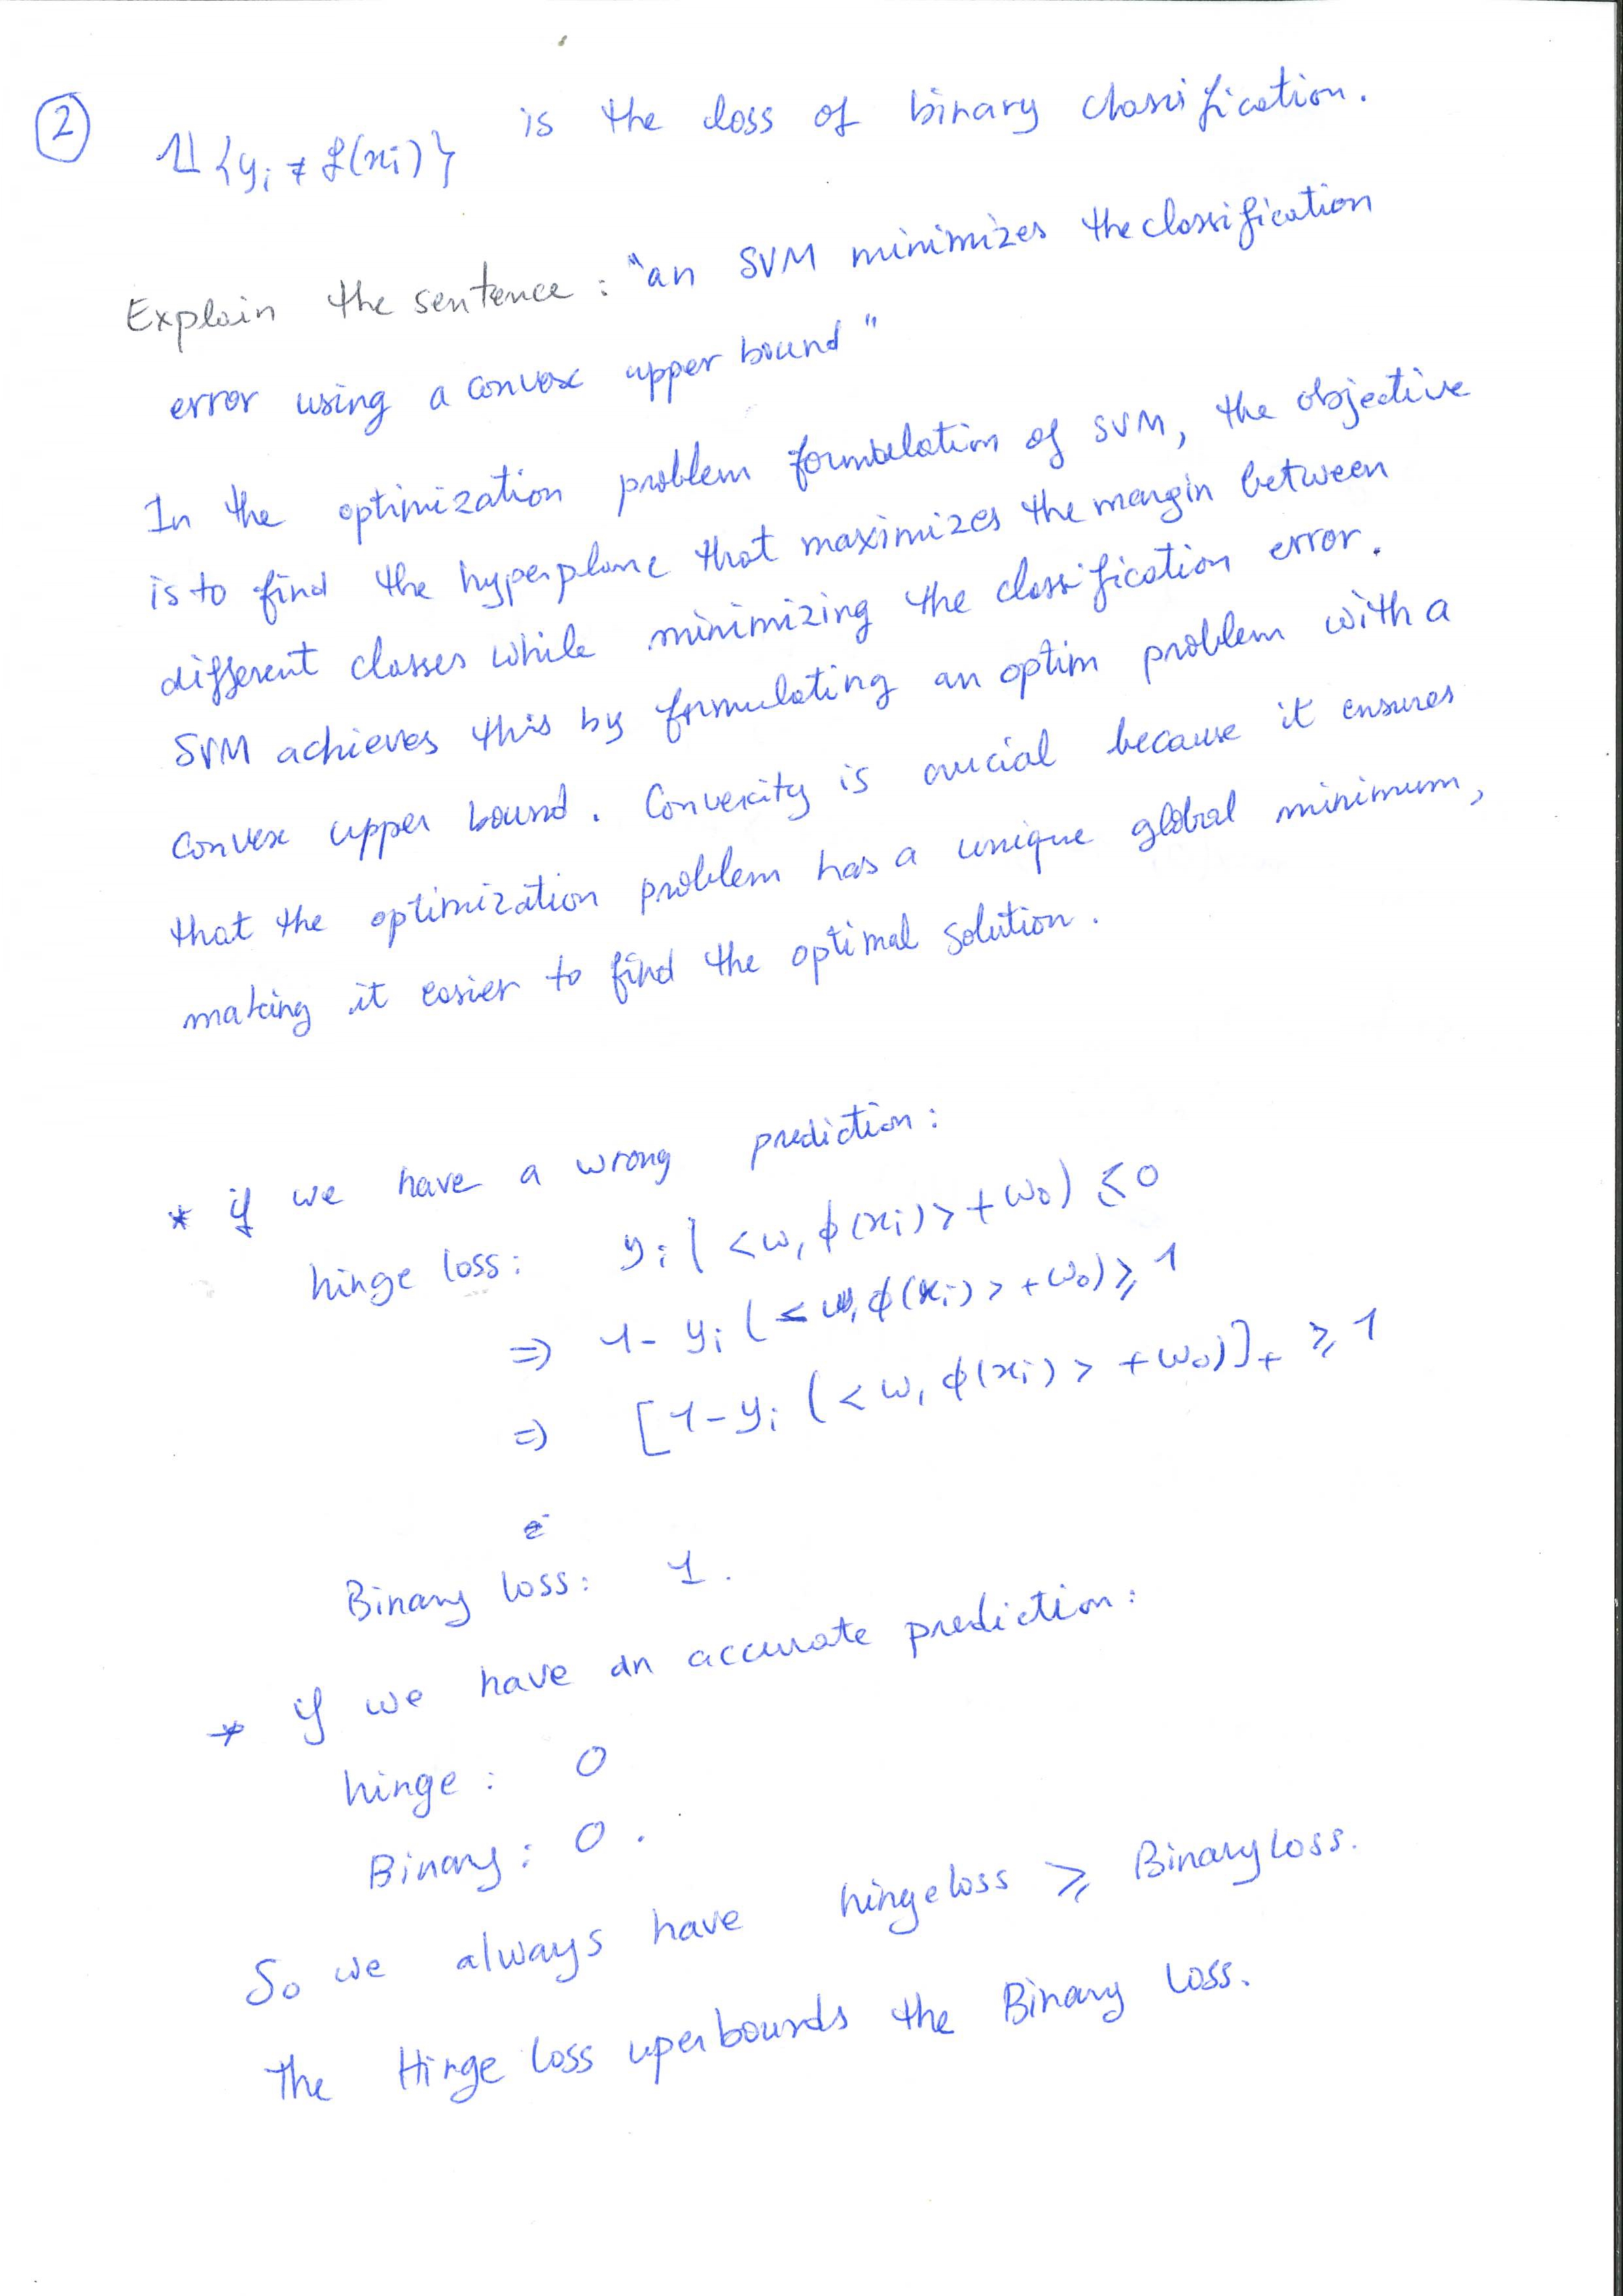 2
𝟙{yᵢ ≠ f(xᵢ)} is the loss of binary classification.
Explain the sentence : "an SVM minimizes the classification
error using a convex upper bound"
In the optimization problem formulation of SVM, the objective
is to find the hyperplane that maximizes the margin between
different classes while minimizing the classification error.
SVM achieves this by formulating an optim problem with a
convex upper bound. Convexity is crucial because it ensures
that the optimization problem has a unique global minimum,
making it easier to find the optimal solution.
* if we have a wrong prediction:
hinge loss: yᵢ(<w, ϕ(xᵢ)> + w₀) ≤ 0
⇒ 1 - yᵢ(<w, ϕ(xᵢ)> + w₀) ≥ 1
⇒ [1 - yᵢ(<w, ϕ(xᵢ)> + w₀)]₊ ≥ 1
Binary loss: 1.
* if we have an accurate prediction:
hinge : 0
Binary : 0.
So we always have hinge loss ≥ Binary loss.
The Hinge loss uperbounds the Binary loss.